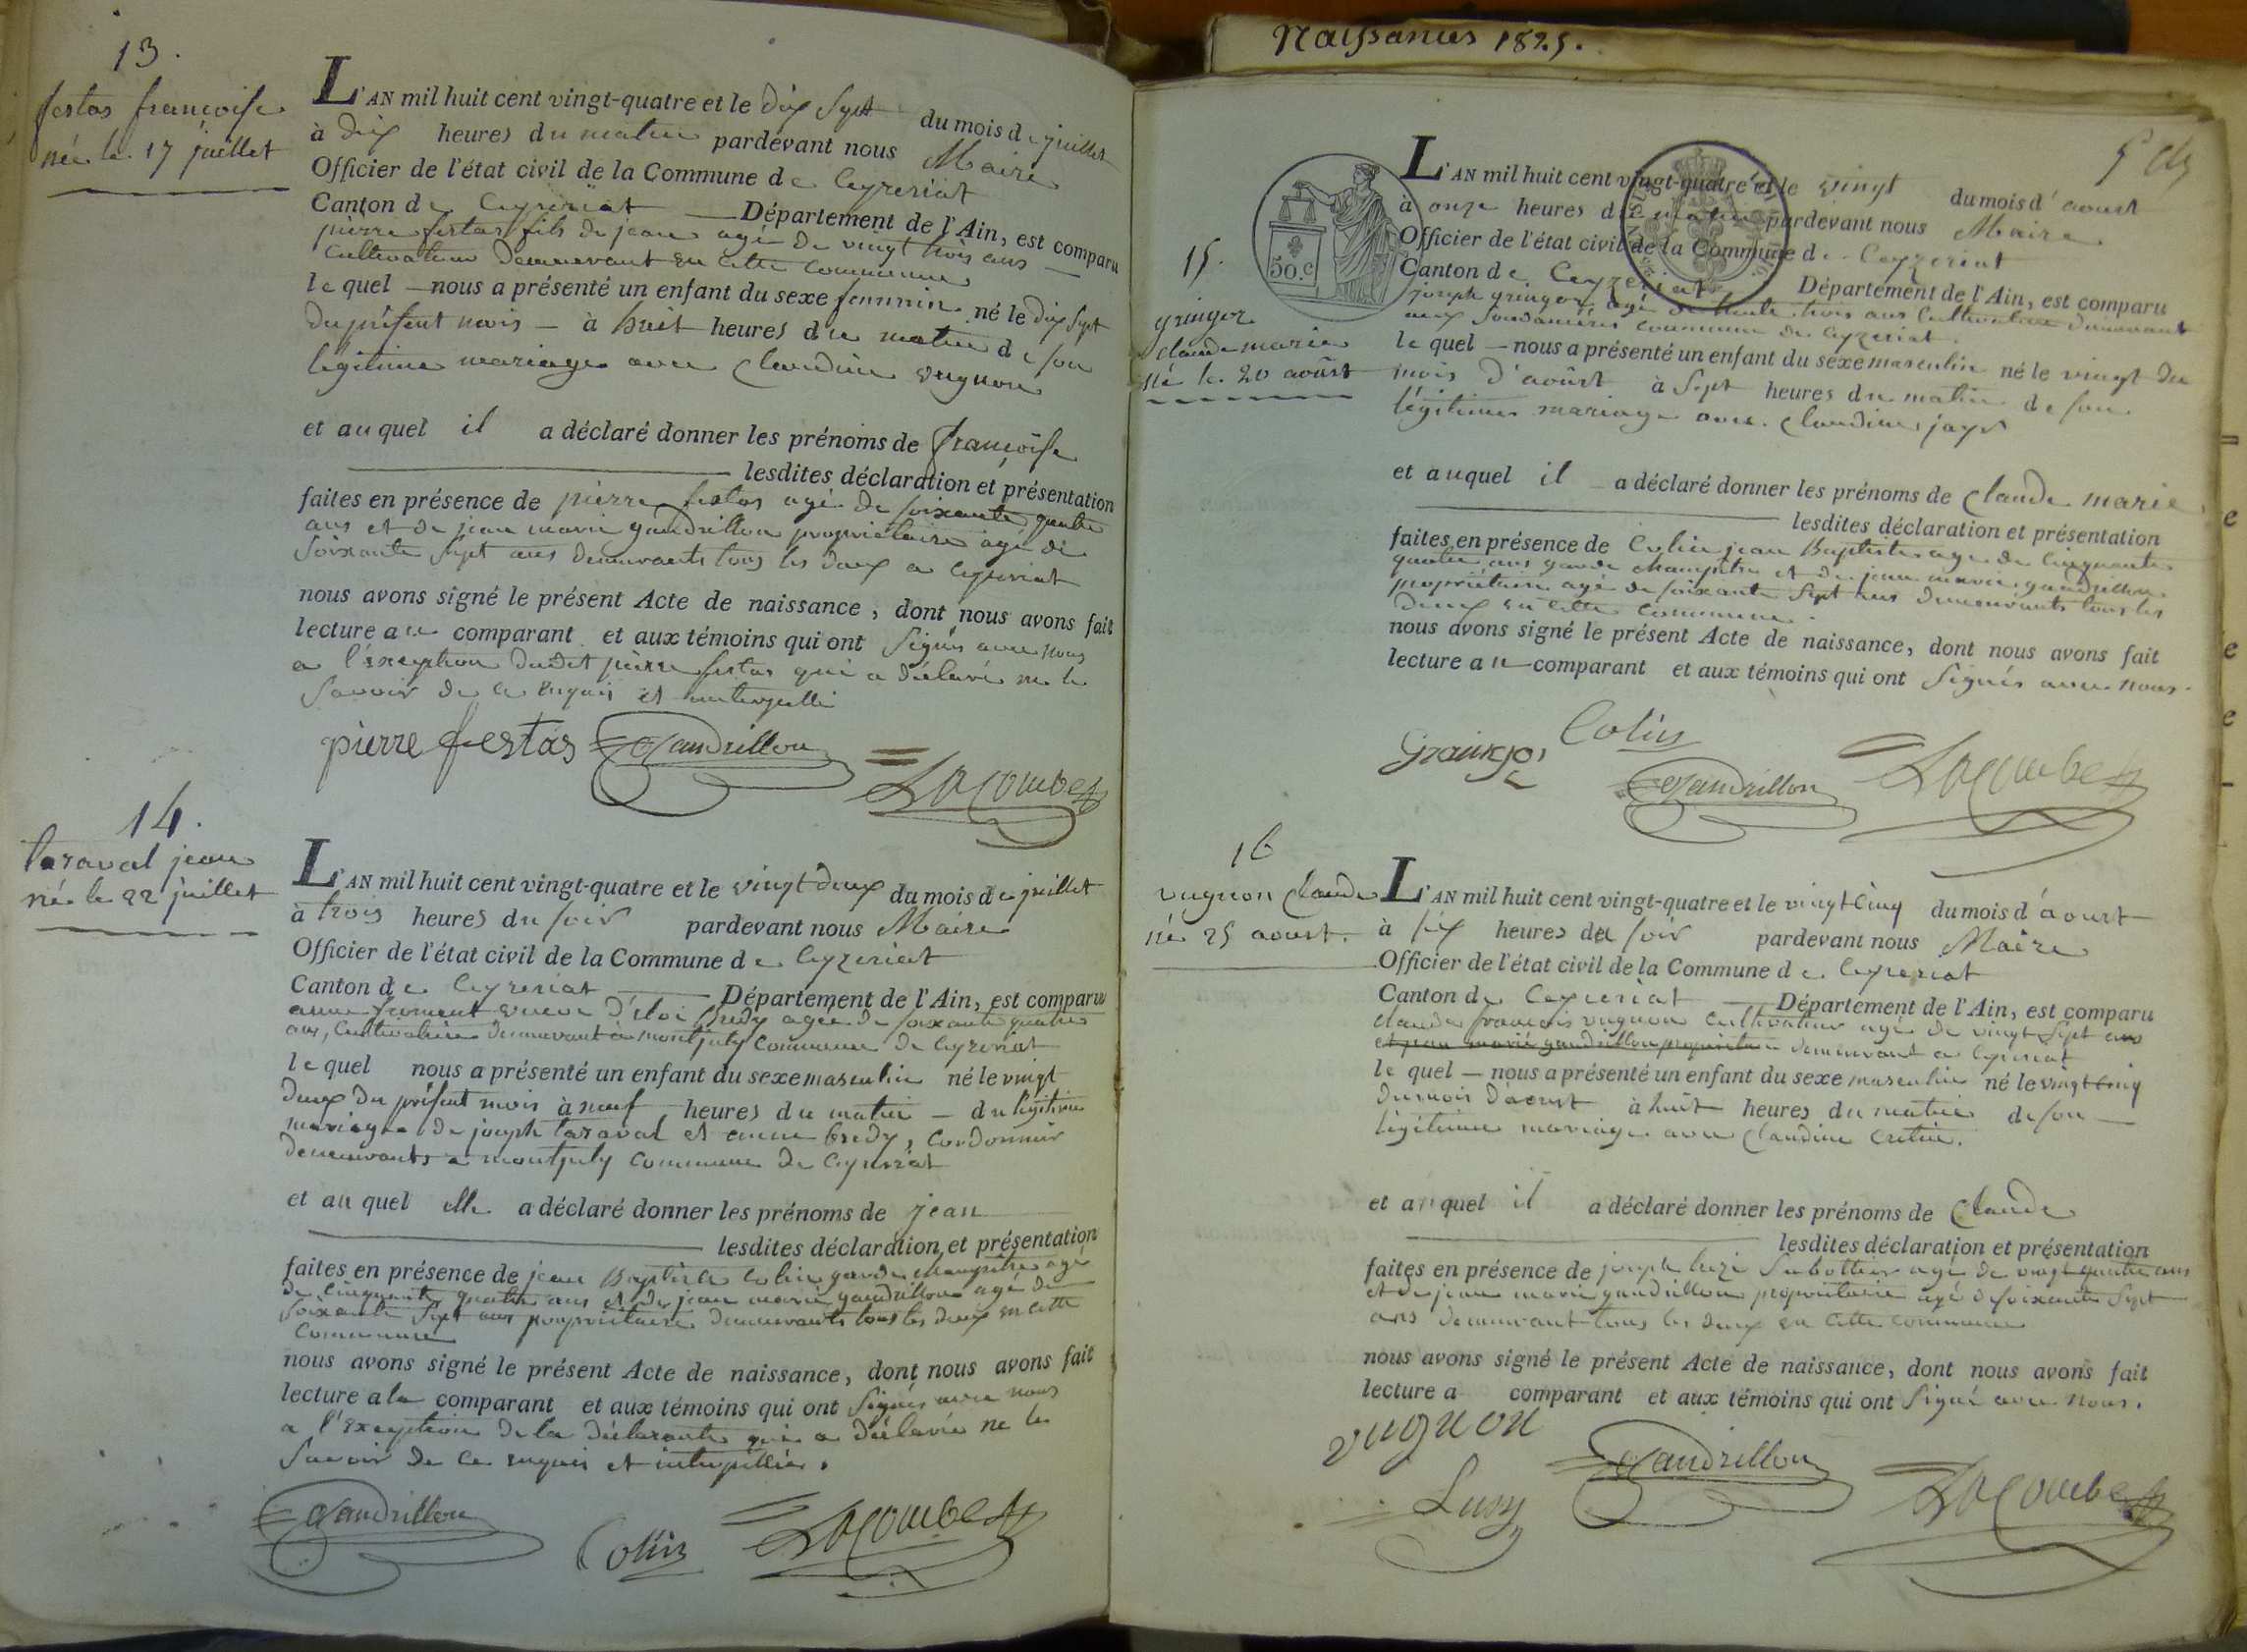 13.
festas françoise
née le 17 juillet
L'AN mil huit cent vingt-quatre et le dix sept du mois de juillet
à dix heures du matin pardevant nous Maire
Officier de l'état civil de la Commune de Ceyzeriat
Canton de Ceyzeriat Département de l'Ain, est comparu
pierre festas fils de jean agé de vingt trois ans
Cultivateur demeurant en cette commune
le quel nous a présenté un enfant du sexe feminin né le dix sept
du présent mois à huit heures du matin de son
légitime mariage avec Claudine vugnon
et au quel il a déclaré donner les prénoms de françoise
lesdites déclaration et présentation
faites en présence de pierre festas agé de soixante quatre
ans et de jean marie gaudrillon propriétaire agé de
soixante sept ans demeurants tous les deux a ceyzeriat
nous avons signé le présent Acte de naissance, dont nous avons fait
lecture au comparant et aux témoins qui ont signés avec nous
a l'exception dudit pierre festas qui a déclaré ne le
savoir de ce enquis et interpellé
pierre festas Gaudrillon
Lacombe
14.
taraval jean
né le 22 juillet
L'AN mil huit cent vingt-quatre et le vingt deux du mois de juillet
à trois heures du soir pardevant nous Maire
Officier de l'état civil de la Commune de Ceyzeriat
Canton de Ceyzeriat Département de l'Ain, est comparu
anne froment veuve d'éloi Bredy agée de soixante quatre
ans, Cultivatrice demeurant à montjuly commune de Ceyzeriat
le quel nous a présenté un enfant du sexe masculin né le vingt
deux du présent mois à neuf heures du matin du légitime
mariage de joseph taraval et anne bredy, cordonnier
demeurants a montjuly commune de Ceyzeriat
et au quel elle a déclaré donner les prénoms de jean
lesdites déclaration et présentation
faites en présence de jean Baptiste Colin garde champêtre agé
de cinquante quatre ans et de jean marie gaudrillon agé de
soixante sept ans propriétaire demeurants tous les deux en cette
commune
nous avons signé le présent Acte de naissance, dont nous avons fait
lecture a la comparant et aux témoins qui ont signés avec nous
a l'exception de la déclarante qui a déclaré ne le
savoir de ce enquis et interpellée.
Gaudrillon Colin Lacombe
Naissances 1825.
50.c
15.
gringoz
claude marie
né le 20 août
L'AN mil huit cent vingt-quatre et le vingt du mois d'aoust
à onze heures du matin pardevant nous Maire
Officier de l'état civil de la Commune de Ceyzeriat
Canton de Ceyzeriat Département de l'Ain, est comparu
joseph gringoz agé de trente trois ans Cultivateur demeurant
aux commune de Ceyzeriat.
le quel nous a présenté un enfant du sexe masculin né le vingt du
mois d'août à sept heures du matin de son
légitime mariage avec Claudine jayr
et auquel il a déclaré donner les prénoms de Claude marie
lesdites déclaration et présentation
faites en présence de Colin jean Baptiste agé de cinquante
quatre ans garde champêtre et de jean marie gaudrillon
propriétaire agé de soixante sept ans demeurants tous les
deux en cette commune.
nous avons signé le présent Acte de naissance, dont nous avons fait
lecture au comparant et aux témoins qui ont signés avec nous.
Colin
Gaudrillon Lacombe
16
vugnon Claude
né 25 aoust.
L'AN mil huit cent vingt-quatre et le vingt cinq du mois d'aoust
à six heures du soir pardevant nous Maire
Officier de l'état civil de la Commune de Ceyzeriat
Canton de Ceyzeriat Département de l'Ain, est comparu
claude françois vugnon cultivateur agé de vingt sept ans
et jean marie gaudrillon propriétaire demeurant a Ceyzeriat
le quel nous a présenté un enfant du sexe masculin né le vingt cinq
du mois d'aoust à huit heures du matin de son
légitime mariage avec Claudine Cretin.
et au quel il a déclaré donner les prénoms de Claude
lesdites déclaration et présentation
faites en présence de joseph luzi sabottier agé de vingt quatre ans
et de jean marie gaudrillon propriétaire agé de soixante sept
ans demeurant tous les deux en cette commune
nous avons signé le présent Acte de naissance, dont nous avons fait
lecture a comparant et aux témoins qui ont signé avec nous.
vugnon
Gaudrillon
Lusy Lacombe